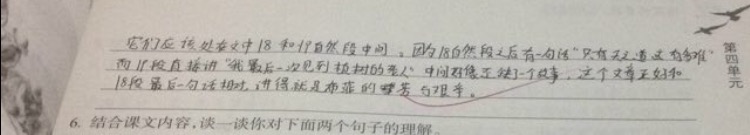 它们应该处在文中18和19自然段中间。因为18自然段之后有一句话"只有天知道这有多难"
而19段直接讲"我最后一次见到植树的老人"中间好像还缺一个故事，这个文章正好和
18段最后一句话相对，讲得就是布菲的辛苦与艰辛。
第四单元
6. 结合课文内容，谈一谈你对下面两个句子的理解。